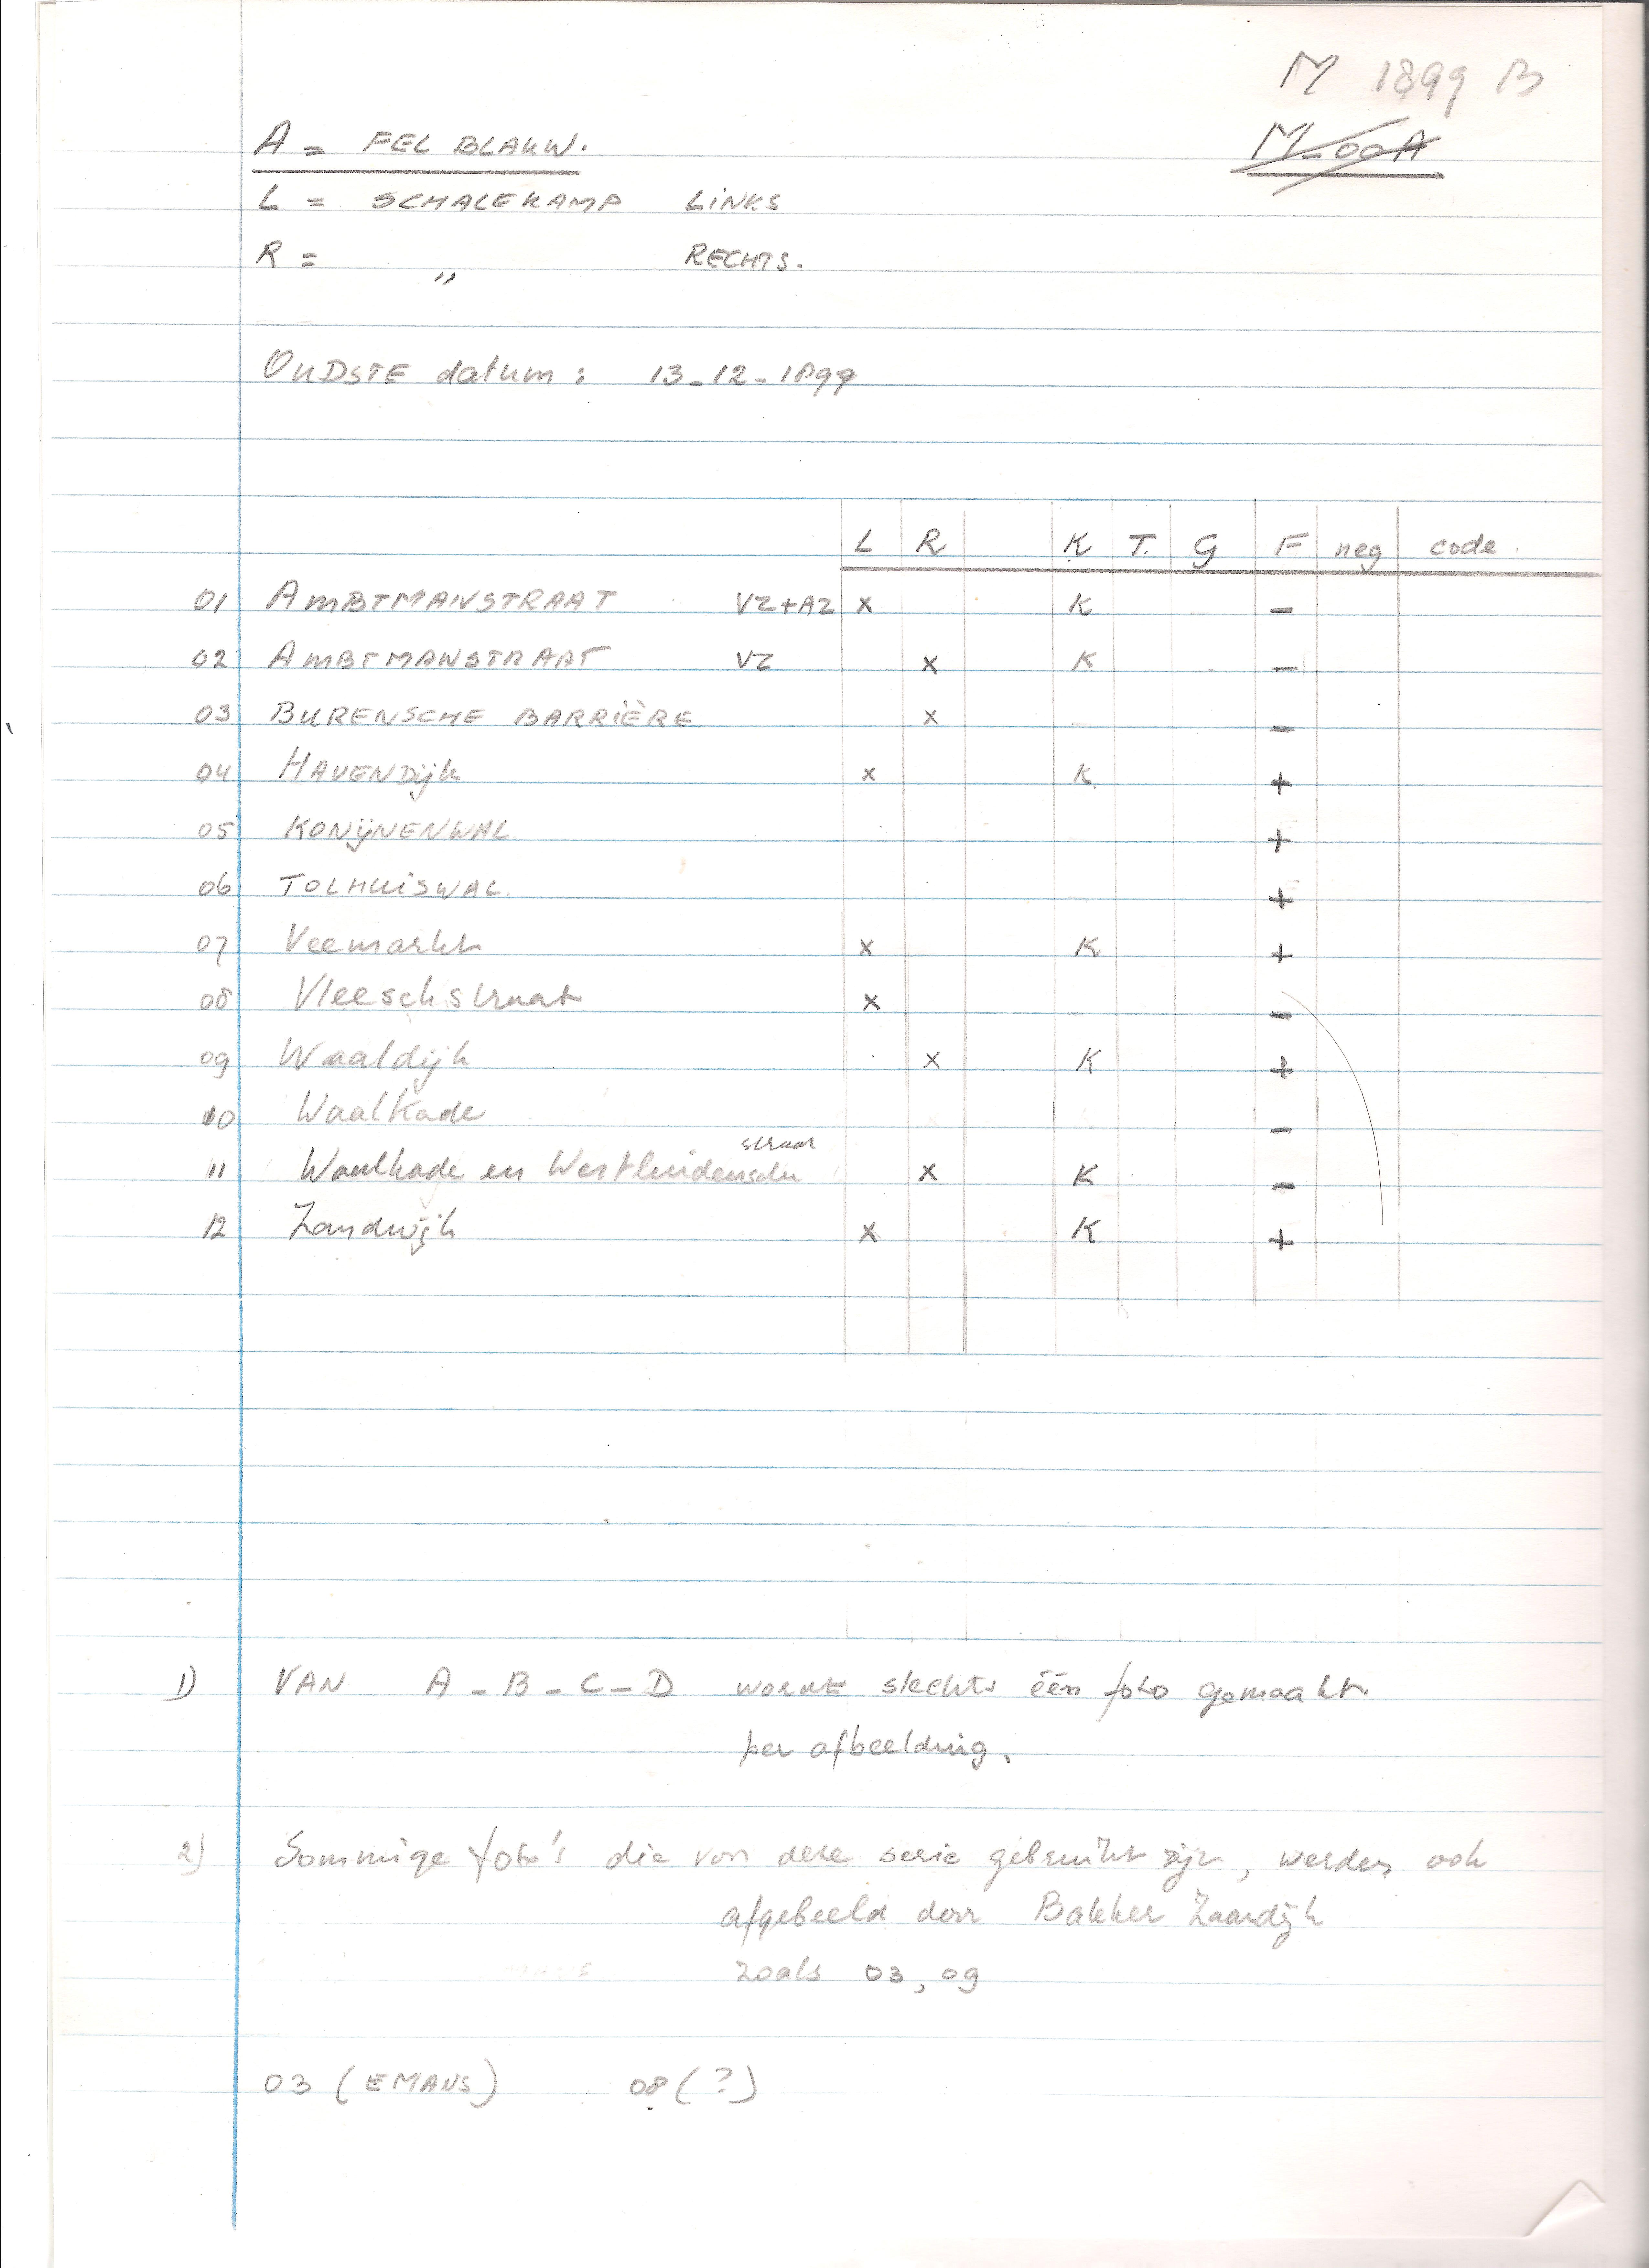 M 1899 B
M-00A
A = FEL BLAUW.
L = SCHALEKAMP LINKS
R = ,, RECHTS.
OUDSTE datum : 13-12-1899
L R K T. G F neg code.
01 AMBTMANSTRAAT VZ+AZ x K –
02 AMBTMANSTRAAT VZ x K –
03 BURENSCHE BARRIÈRE x –
04 HAVENDijk x K +
05 KONijNENWAL +
06 TOLHUiSWAL. +
07 Veemarkt x K +
08 Vleeschstraat x –
09 Waaldijk x K +
10 Waalkade –
straat
11 Waalkade en Westluidensche x K –
12 Zandwijk x K +
1) VAN A - B - C - D wordt slechts één foto gemaakt.
per afbeelding.
2) Sommige foto's die van deze serie gebruikt zijn, werden ook
afgebeeld door Bakker Zaandijk
zoals 03, 09
03 (EMANS) 08 (?)